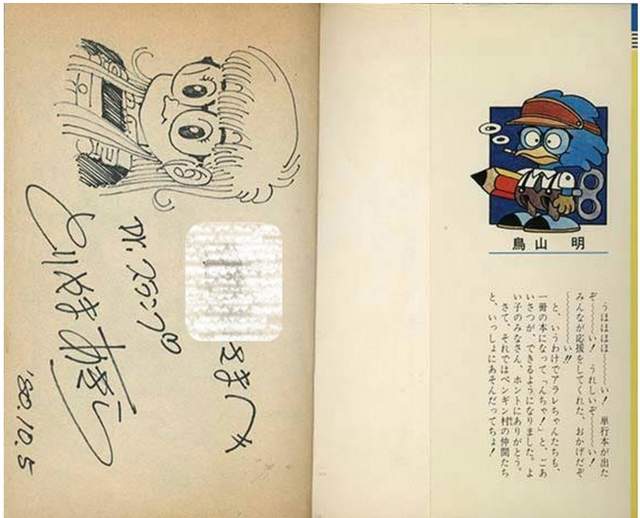 鳥山 明
うほほほ〜〜〜い! 単行本が出た
ぞ〜〜〜い! うれしいぞ〜〜〜い!
みんなが応援をしてくれた、おかげだぞ
〜〜〜〜い!!
と、いうわけでアラレちゃんたちも、
一冊の本になって「んちゃ!」と、ごあ
いさつが、できるようになりました。よ
い子のみなさん、ホントにありがとう。
さて、それではペンギン村の仲間たち
と、いっしょにあそんだってちょ!
さまへ
Dr.スランプ
とりやまあきら
'80.10.5